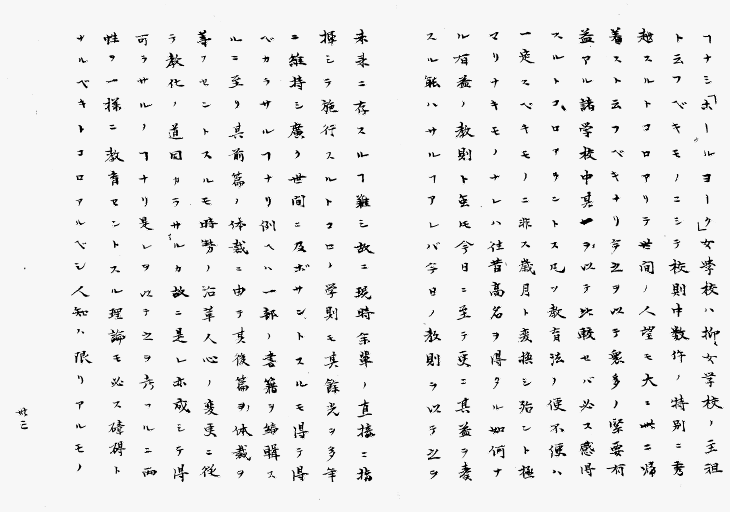 ヿナシ「ホールヨーク」女学校ハ抑女学校ノ主祖
ト云フベキモノニシテ校則中数件ノ特別ニ秀
越スルトコロアリテ世間ノ人望モ大ニ此ニ帰
着スト云フベキナリ今之ヲ以テ衆多ノ緊要有
益アル諸学校中其一ヲ以テ比較セバ必ス感得
スルトコロアラントス凡ソ教育法ノ便不便ハ
一定スベキモノニ非ス歳月ト変換シ殆ント極
マリナキモノナレハ往昔高名ヲ得タル如何ナ
ル有益ノ教則ト雖モ今日ニ至テ更ニ其益ヲ変
スル能ハサルヿアレバ今日ノ教則ヲ以テ之ヲ
未来ニ存スルヿ難シ故ニ現時余輩ノ直接ニ指
揮シテ施行スルトコロノ学則モ其餘光ヲ多年
ニ維持シ廣ク世間ニ及ボサントスルモ得テ得
ベカラサルヿナリ例ヘハ一部ノ書籍ヲ編輯ス
ルニ至リ其前篇ノ体裁ニ由テ其後篇ヲ体裁ヲ
等フセントスルモ時勢ノ沿革人心ノ変更ニ従
テ教化ノ道同カラサルカ故ニ是レ亦成シテ得
可ラサルノヿナリ是レヲ以テ之ヲ考フルニ両
性ヲ一様ニ教育セントスル理論モ必ス礙碍ト
ナルベキトコロアルベシ人知ハ限リアルモノ
廿三